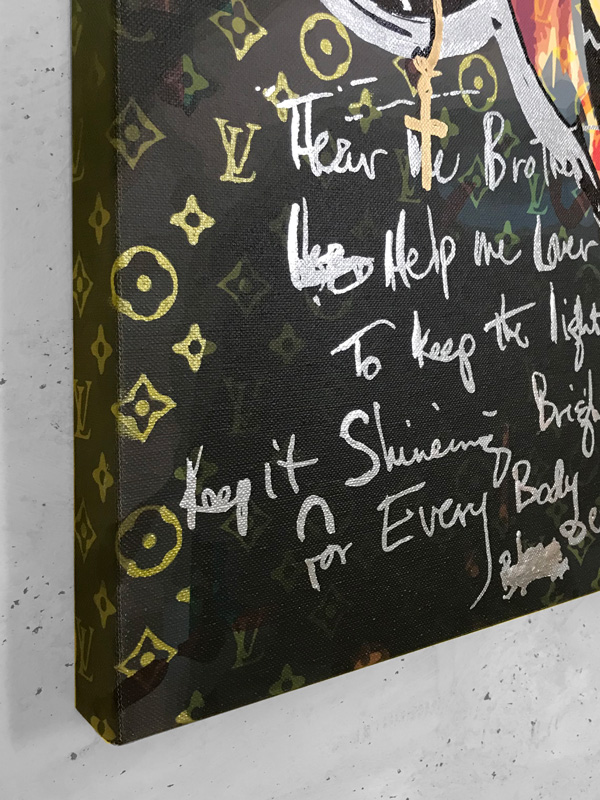 Hear Me Brothe
Help me Lover
To keep the light
Brigh
Keep it Shineing
for Every Body
LV
LV
LV
LV